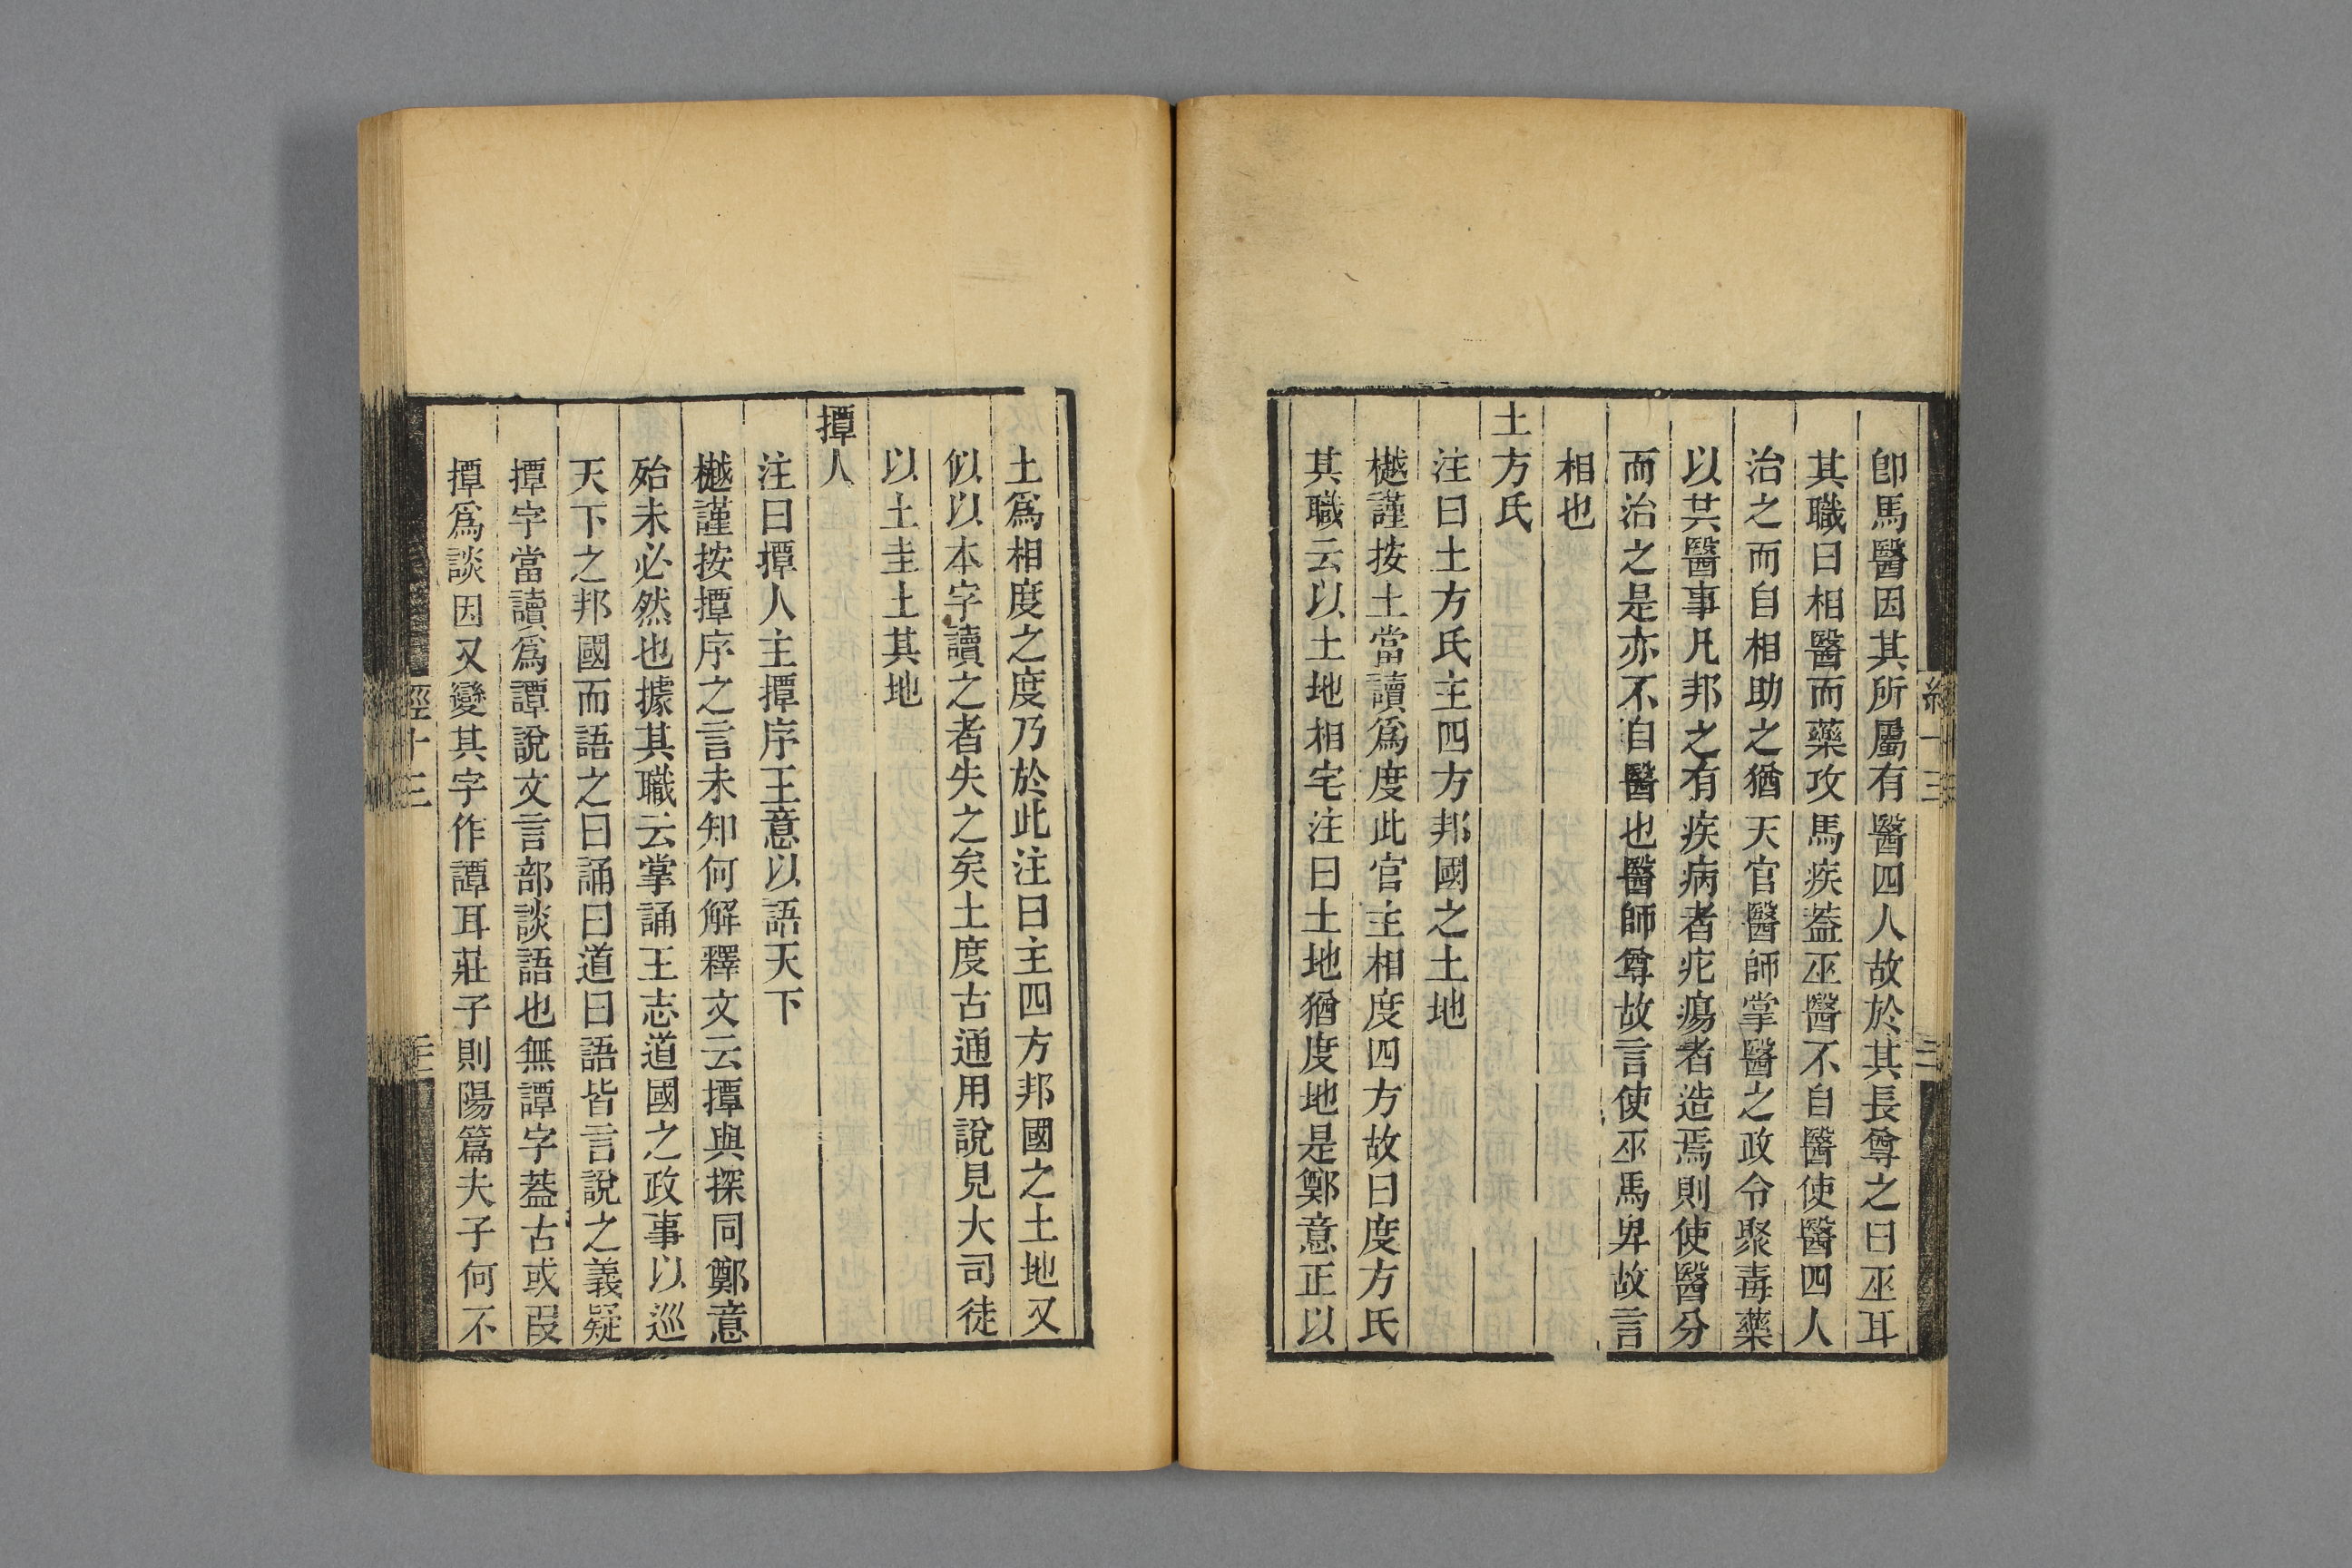 卽馬醫因其所屬有醫四人故於其長尊之曰巫耳
其職曰相醫而藥攻馬疾葢巫醫不自醫使醫四人
治之而自相助之猶天官醫師掌醫之政令聚毒藥
以共醫事凡邦之有疾病者疕瘍者造焉則使醫分
而治之是亦不自醫也醫師尊故言使巫馬卑故言
相也
土方氏
注曰土方氏主四方邦國之土地
樾謹按土當讀爲度此官主相度四方故曰度方氏
其職云以土地相宅注曰土地猶度地是鄭意正以
土爲相度之度乃於此注曰主四方邦國之土地又
似以本字讀之者失之矣土度古通用說見大司徒
以土圭土其地
撢人
注曰撢人主撢序王意以語天下
樾謹按撢序之言未知何解釋文云撢與探同鄭意
殆未必然也據其職云掌誦王志道國之政事以巡
天下之邦國而語之曰誦曰道曰語皆言說之義疑
撢字當讀爲譚說文言部談語也無譚字葢古或叚
撢爲談因又變其字作譚耳莊子則陽篇夫子何不
經十三